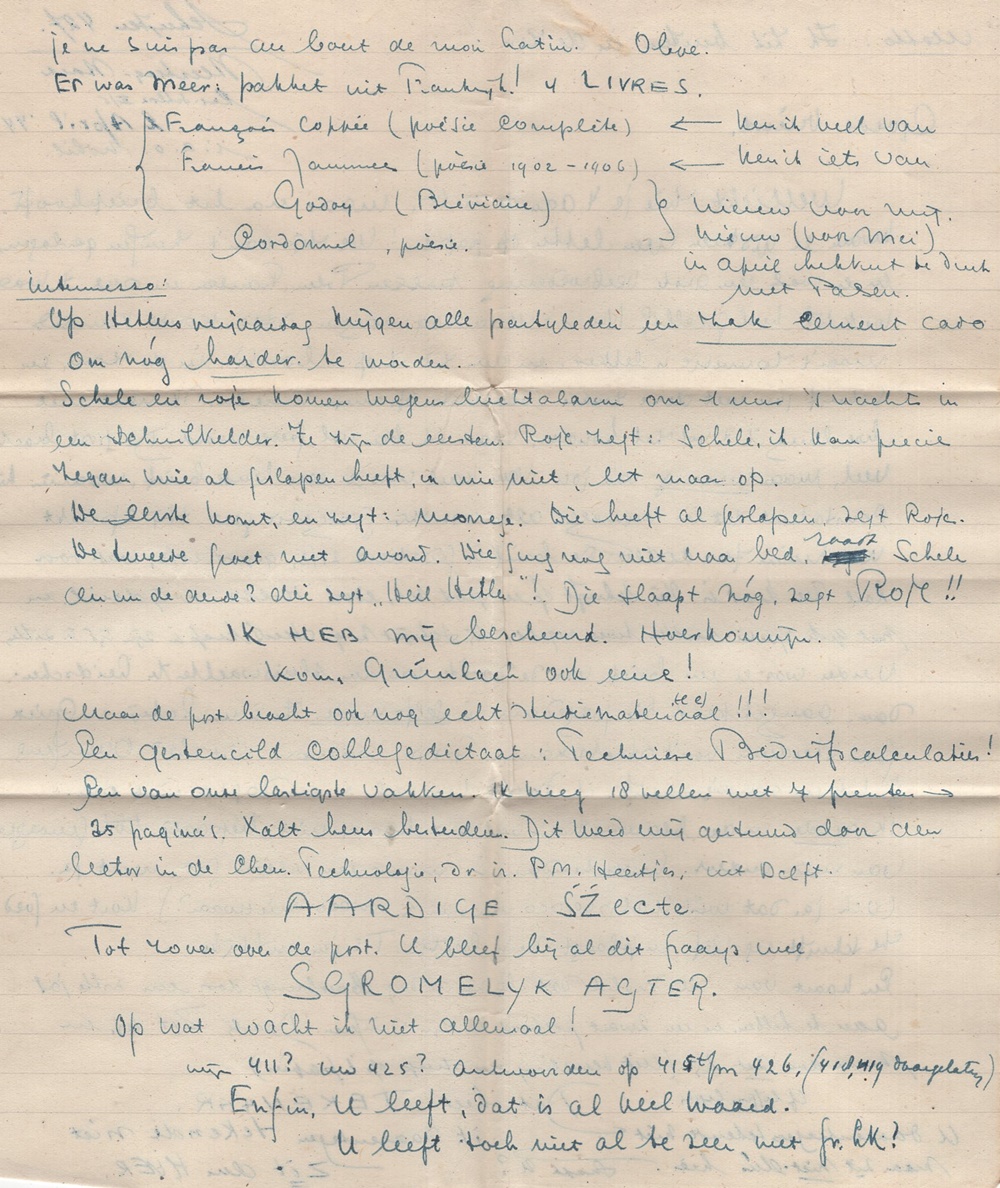 je ne suis pas au bout de mon Latin. Oleve.
Er was meer: pakket uit Frankrijk! 4 LIVRES.
François Coppée (poésie complète) ← ken ik veel van
Francis Jammes (poésie 1902-1906) ← ken ik iets van
Godoy (Bréviaire) } nieuw voor mij.
Cordonnel, poésie. nieuw (voor Mei)
in April hebben te druk
met Pasen.
intermesso:
Op Hetlers verjaardag krijgen alle partijleden een zak cement cado
om nóg harder te worden.
Schele en rose komen wegens luchtalarm om 1 uur 's nachts in
een schuilkelder. Ze zijn de eersten. Rose zegt: Schele, ik kan precie
zeggen wie al geslapen heeft, en wie niet, let maar op.
De eerste komt, en zegt: morrege. Die heeft al geslapen, zegt Rose.
De tweede groet met avond. Die ging nog niet naar bed, raast Schele
En nu de derde? die zegt "Heil Hetler"! Die slaapt nóg, zegt Rose!!
IK HEB mij bescheurd. Hoerkomijn.
Kom, Grünlach ook eens!
Maar de post bracht ook nog echt studiemateriaal !!!
Een gestencild collegedictaat: Techniese Bedrijfscalculaties!
Een van onze lastigste vakken. Ik kreeg 18 vellen met 4 prenten →
35 pagina's. Xalt hens bestuderen. Dit werd mij gestuurd door den
lector in de Chem. Technologie, dr ir. P.M. Heertjes, uit Delft.
AARDIGE SŹecte
Tot zover over de post. U bleef bij al dit fraays wel
SGROMELYK AGTER.
Op wat wacht ik niet allemaal!
mijn 411? uw 425? Antwoorden op 415 t/m 426, (418, 419 daargelaten)
Enfin, U leeft, dat is al heel waard.
U leeft toch niet al te zeer met Gr. Ek?